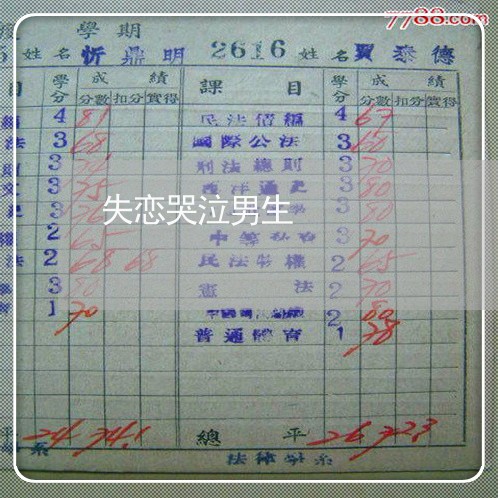 7788.com
學期
姓名 忻鼎明 2616 姓名 賈泰德
目 學分 成績 課目 學分 成績
分數 扣分 實得 分數 扣分 實得
4 81 民法債編 4 67
法 3 68 國際公法 3 60
3 刑法總則 3 70
3 75 西洋通史 3 80
3 3 80
2 65 3 70
法 2 68 68 民法物權 2 65
3 80 憲法 2 70
1 70 2 80
普通體育 1 78
失恋哭泣男生
平 24 74.1 總平 26 72.3
系 法律學系